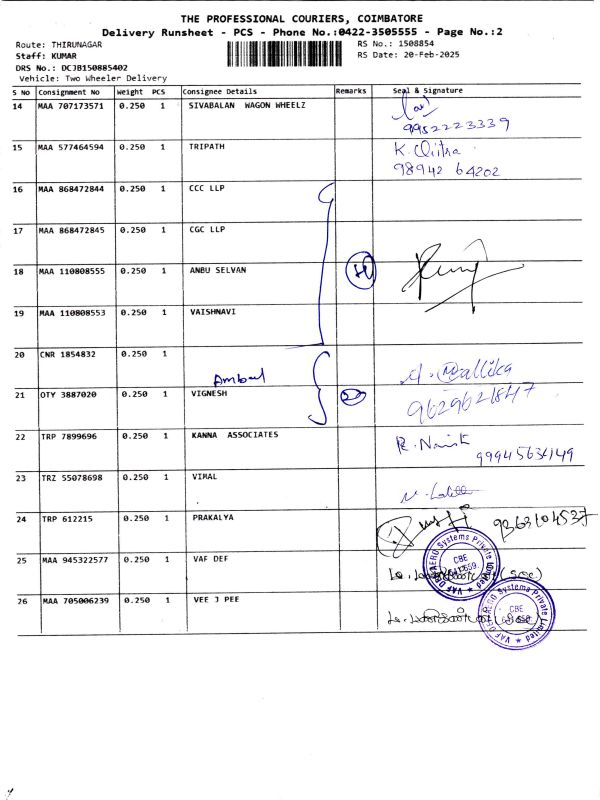 THE PROFESSIONAL COURIERS, COIMBATORE
Delivery Runsheet - PCS - Phone No.:0422-3505555 - Page No.:2
Route: THIRUNAGAR
RS No.: 1508854
Staff: KUMAR
RS Date: 20-Feb-2025
DRS No.: DCJB150885402
Vehicle: Two Wheeler Delivery
S No Consignment No Weight PCS Consignee Details Remarks Seal & Signature
14 MAA 707173571 0.250 1 SIVABALAN WAGON WHEELZ
9952223339
15 MAA 577464594 0.250 1 TRIPATH K. Chitra
98942 64202
16 MAA 868472844 0.250 1 CCC LLP
17 MAA 868472845 0.250 1 CGC LLP
18 MAA 110808555 0.250 1 ANBU SELVAN
19 MAA 110808553 0.250 1 VAISHNAVI
20 CNR 1854832 0.250 1
21 OTY 3887020 0.250 1 VIGNESH
9629621847
22 TRP 7899696 0.250 1 KANNA ASSOCIATES
23 TRZ 55078698 0.250 1 VIMAL
24 TRP 612215 0.250 1 PRAKALYA 9363104537
25 MAA 945322577 0.250 1 VAF DEF
26 MAA 705006239 0.250 1 VEE J PEE